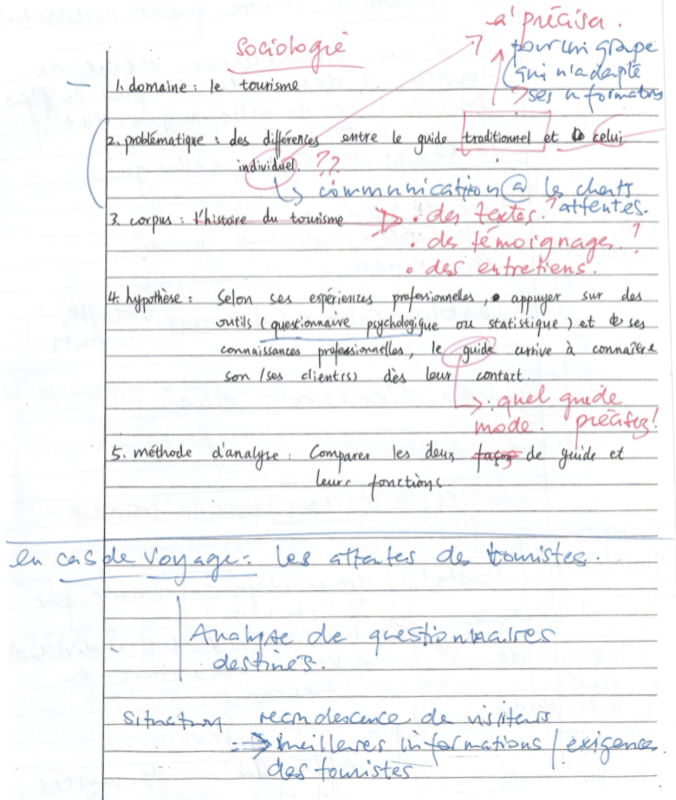 à préciser.
Sociologie
pour un grape
qui n'adapte
ses informations
1. domaine : le tourisme
2. problématique : des différences entre le guide traditionnel et celui
individuel. ??
communication @ les clients
attentes.
3. corpus : l'histoire du tourisme
• des textes ?
• des témoignages ?
• des entretiens.
4. hypothèse : Selon ses expériences professionnelles, appuyer sur des
outils (questionnaire psychologique ou statistique) et ses
connaissances professionnelles, le guide arrive à connaître
son/ses client(s) dès leur contact.
: quel guide
mode. précisez!
5. méthode d'analyse : Comparer les deux façons de guide et
leurs fonctions.
en cas de voyage : les attentes des touristes.
Analyse de questionnaires
destinés.
Situation recrudescence de visiteurs
=> meilleures informations / exigence
des touristes